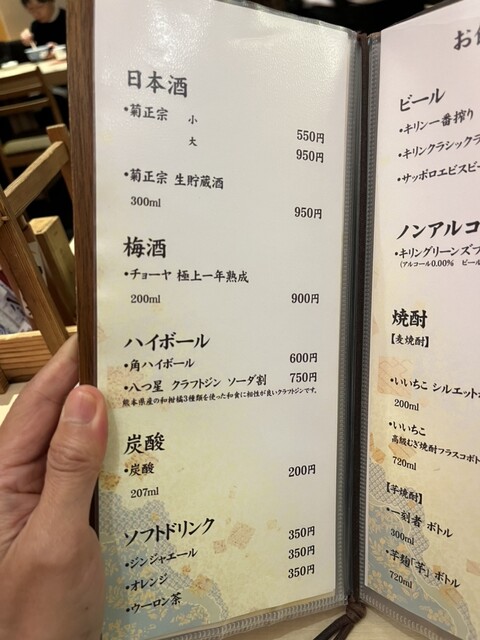 日本酒
・菊正宗 小 550円
大 950円
・菊正宗 生貯蔵酒
300ml 950円
梅酒
・チョーヤ 極上一年熟成
200ml 900円
ハイボール
・角ハイボール 600円
・八つ星 クラフトジン ソーダ割 750円
熊本県産の和柑橘3種類を使った和食に相性が良いクラフトジンです。
炭酸
・炭酸 200円
207ml
ソフトドリンク
・ジンジャエール 350円
・オレンジ 350円
・ウーロン茶 350円
お
ビール
・キリン一番搾り
・キリンクラシックラ
・サッポロエビスビー
ノンアルコ
・キリングリーンズフ
(アルコール0.00% ビール
焼酎
【麦焼酎】
・いいちこ シルエット
200ml
・いいちこ
高級むぎ焼酎フラスコボト
720ml
【芋焼酎】
・一刻者 ボトル
300ml
・芋麹「芋」ボトル
720ml